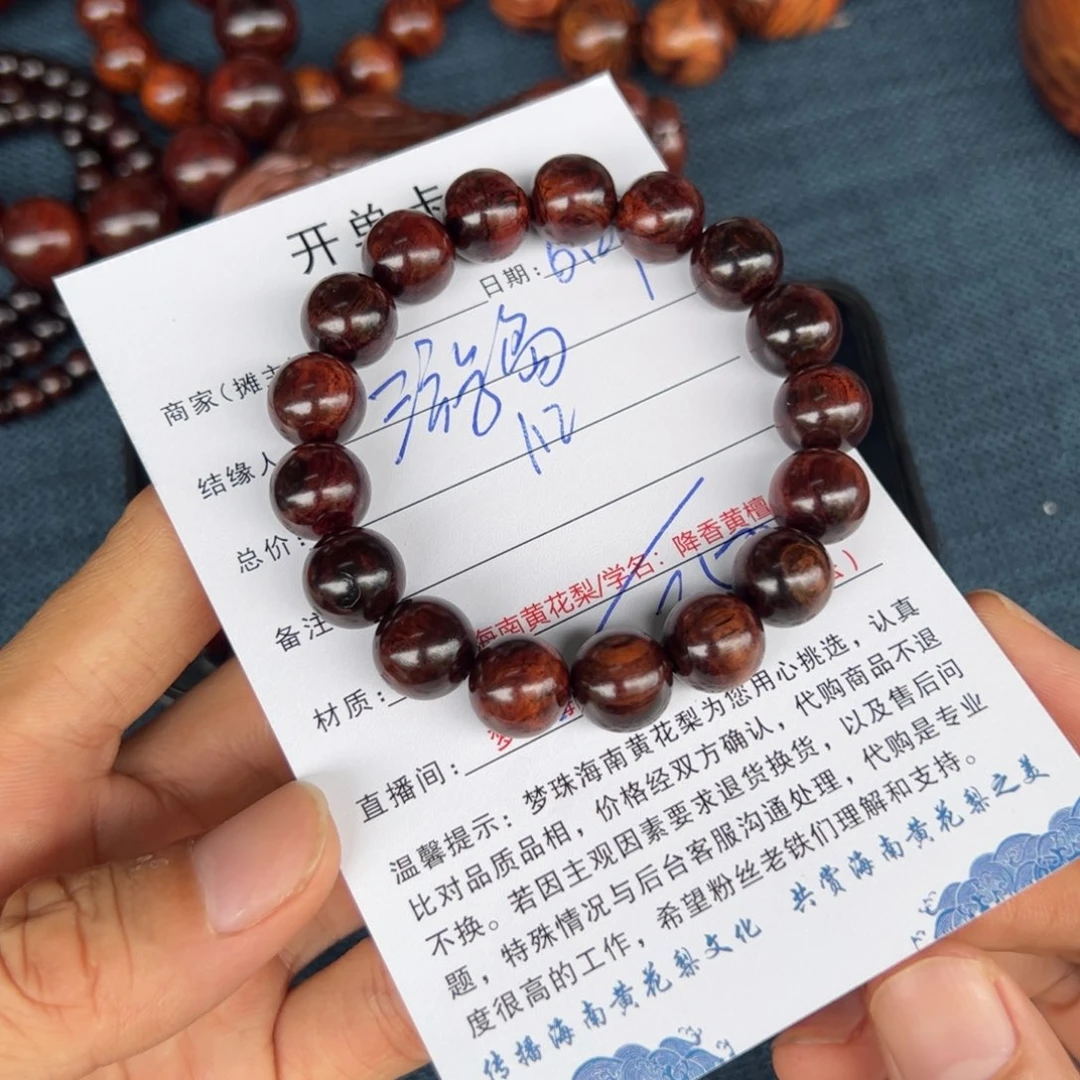 开单卡
日期:
商家(摊主
结缘人
总价:
备注
海南黄花梨/学名:降香黄檀
材质:
直播间:
温馨提示:梦珠海南黄花梨为您用心挑选,认真
比对品质品相,价格经双方确认,代购商品不退
不换。若因主观因素要求退货换货,以及售后问
题,特殊情况与后台客服沟通处理,代购是专业
度很高的工作,希望粉丝老铁们理解和支持。
传播海南黄花梨文化 共赏海南黄花梨之美